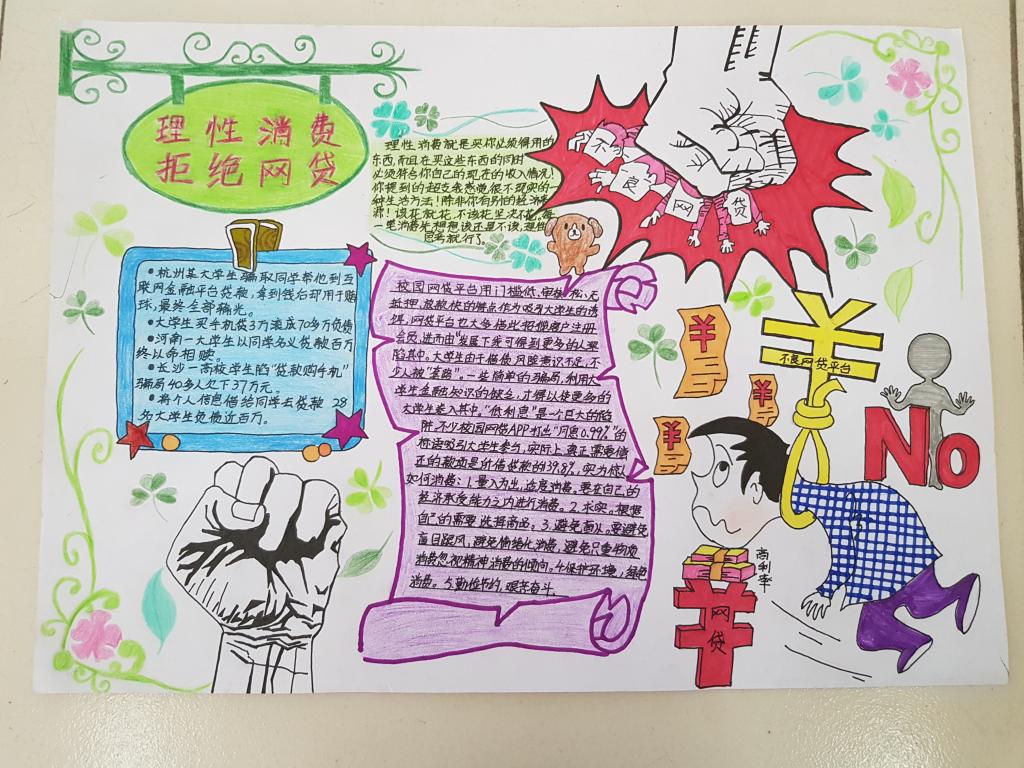 理性消费
拒绝网贷
理性消费就是买你必须得用的
东西,而且在买这些东西的同时
必须符合你自己的现在的收入情况!
你提到的超支我感觉很不现实的一
种生活方法!除非你有别的经济来
源!该花就花,不该花坚决不花,每
一笔消费先想想该还是不该,理性
思考就行了。
不
良
网
贷
•杭州某大学生骗取同学帮他到互
联网金融平台贷款,拿到钱后却用于赌
球,最终全部输光。
•大学生买手机贷3万滚成70多万负债
•河南一大学生以同学名义贷款百万
终以命相赎。
•长沙一高校学生陷“贷款购手机”
骗局40多人欠下37万元。
•将个人信息借给同学去贷款 28
名大学生负债近百万。
校园网贷平台用门槛低,审核松,无
抵押,放款快的特点作为吸引大学生的诱
饵,网贷平台也大多借此招揽客户注册
会员,进而由“发展下线可得到更多的人要
陷其中。大学生由于借债风险意识不足,不
少人被“套路”。一些简单的骗局,利用大
学生金融知识的缺乏,才得以使更多的
大学生卷入其中。“低利息”是一个巨大的陷
阱,不少校园网贷APP打出“月息0.99%”的
标语吸引大学生参与,实际上真正需要偿
还的数边是价值贷款的39.8%,实为惊人
如何消费:1.量入为出,适度消费,要在自己的
经济承受能力之内进行消费。2.求实。根据
自己的需要选择商品;3.避免盲从,要避免
盲目跟风,避免情绪化消费,避免只重物质
消费忽视精神消费的倾向。4.保护环境,绿色
消费。5.勤俭节约,艰苦奋斗。
不良网贷平台
No
高利率
网
贷